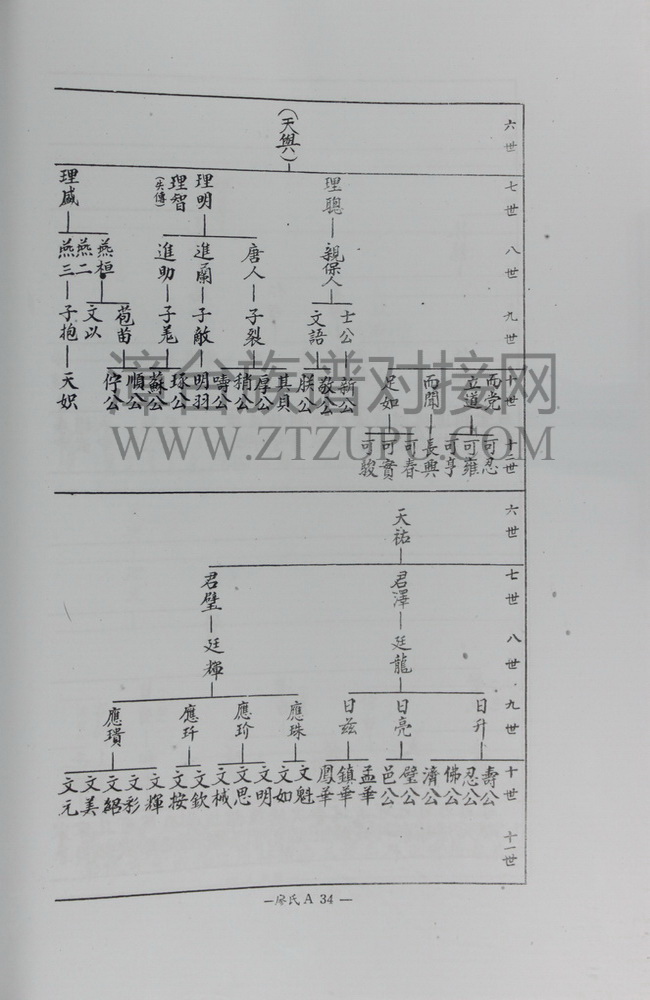 六世
(天與)
七世
理聰
理明
理智
(失傳)
理盛
八世
親保人
唐人
進蘭
進助
燕桓
燕二
燕三
九世
士公
文語
子裂
子敵
子羌
苞苗
文以
子抱
十世
而党
立道
而聞
足如
新公
敬公
朕公
其貝
厚公
稍公
嚋公
明羽
琢公
蘇公
順公
佇公
天妖
十一世
可忍
可雍
可亨
長興
可春
可實
可駿
六世
天祐
七世
君澤
君璧
八世
廷龍
廷輝
九世
日升
日亮
日茲
應珠
應珍
應玕
應璝
十世
壽公
忍公
佛公
濟公
璧公
邑公
孟華
鎮華
鳳華
文魁
文如
文明
文思
文械
文欽
文按
文輝
文彩
文紹
文美
文元
十一世
—廖氏 A 34—
澶台族谱对接网
WWW.ZTZUPU.COM